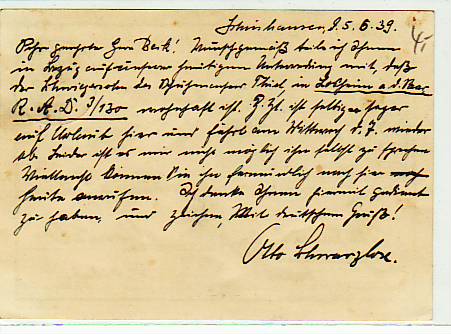 Schönhausen, d. 5.6.39.
Sehr geehrter Herr Berk! Wunschgemäß teile ich Ihnen
in Bezug auf unsere heutigen Unterredung mit, daß
der Schwiegersohn des Schuhmacher Thiel, in Lolheim a. d.
R. A. D. 7/130 wohnhaft ist. Z. Zt. ist selbiger sogar
auf Urlaub hier und fährt am Mittwoch d. 7. wieder
ab. Leider ist es mir nicht möglich ihn selbst zu sprechen
Vielleicht können Sie ihn fernmündlich noch hier
heute anrufen. Ich denke Ihnen hiermit gedient
zu haben, und zeichne, Mit deutschem Gruß!
Otto Schwarzlose.